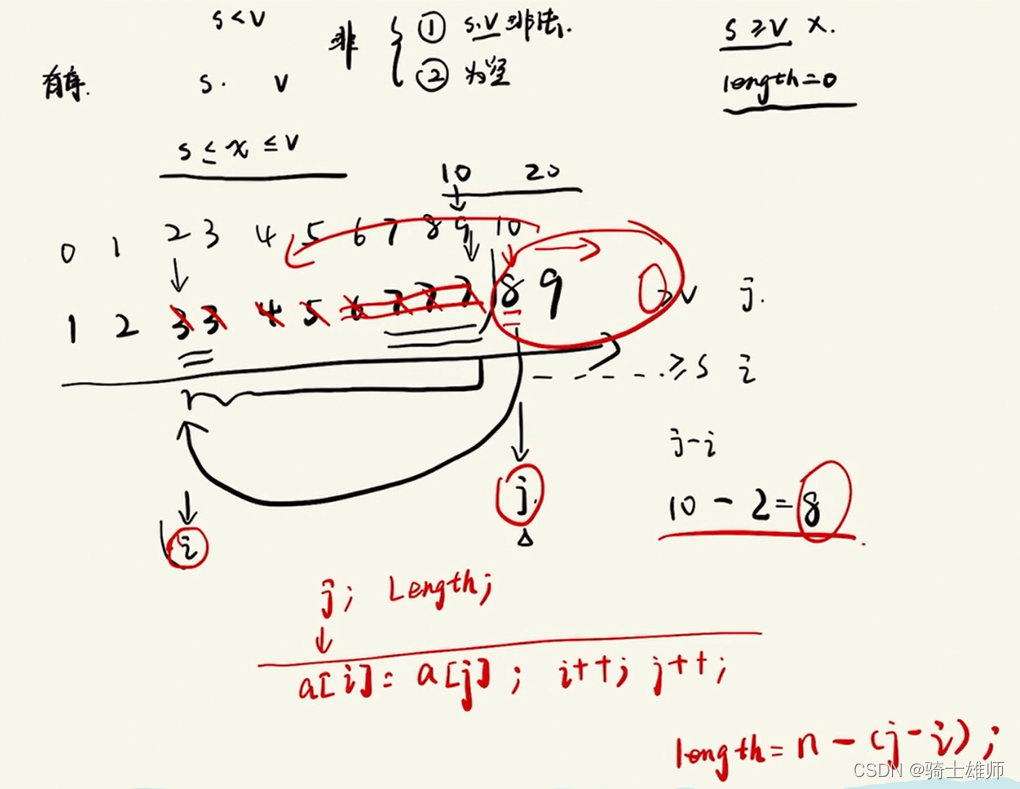 s<v
非 { ① s.v 非法.
② 为空
s≥v x.
length=0
有序.
s. v
s≤x≤v
10 20
0 1 2 3 4 5 6 7 8 9 10
1 2 3 3 4 5 6 7 7 7 8 9
>v j.
≥s i
j-i
10-2=8
i
j.
j; Length;
a[i]=a[j]; i++; j++;
length=n-(j-i);
CSDN @骑士雄师